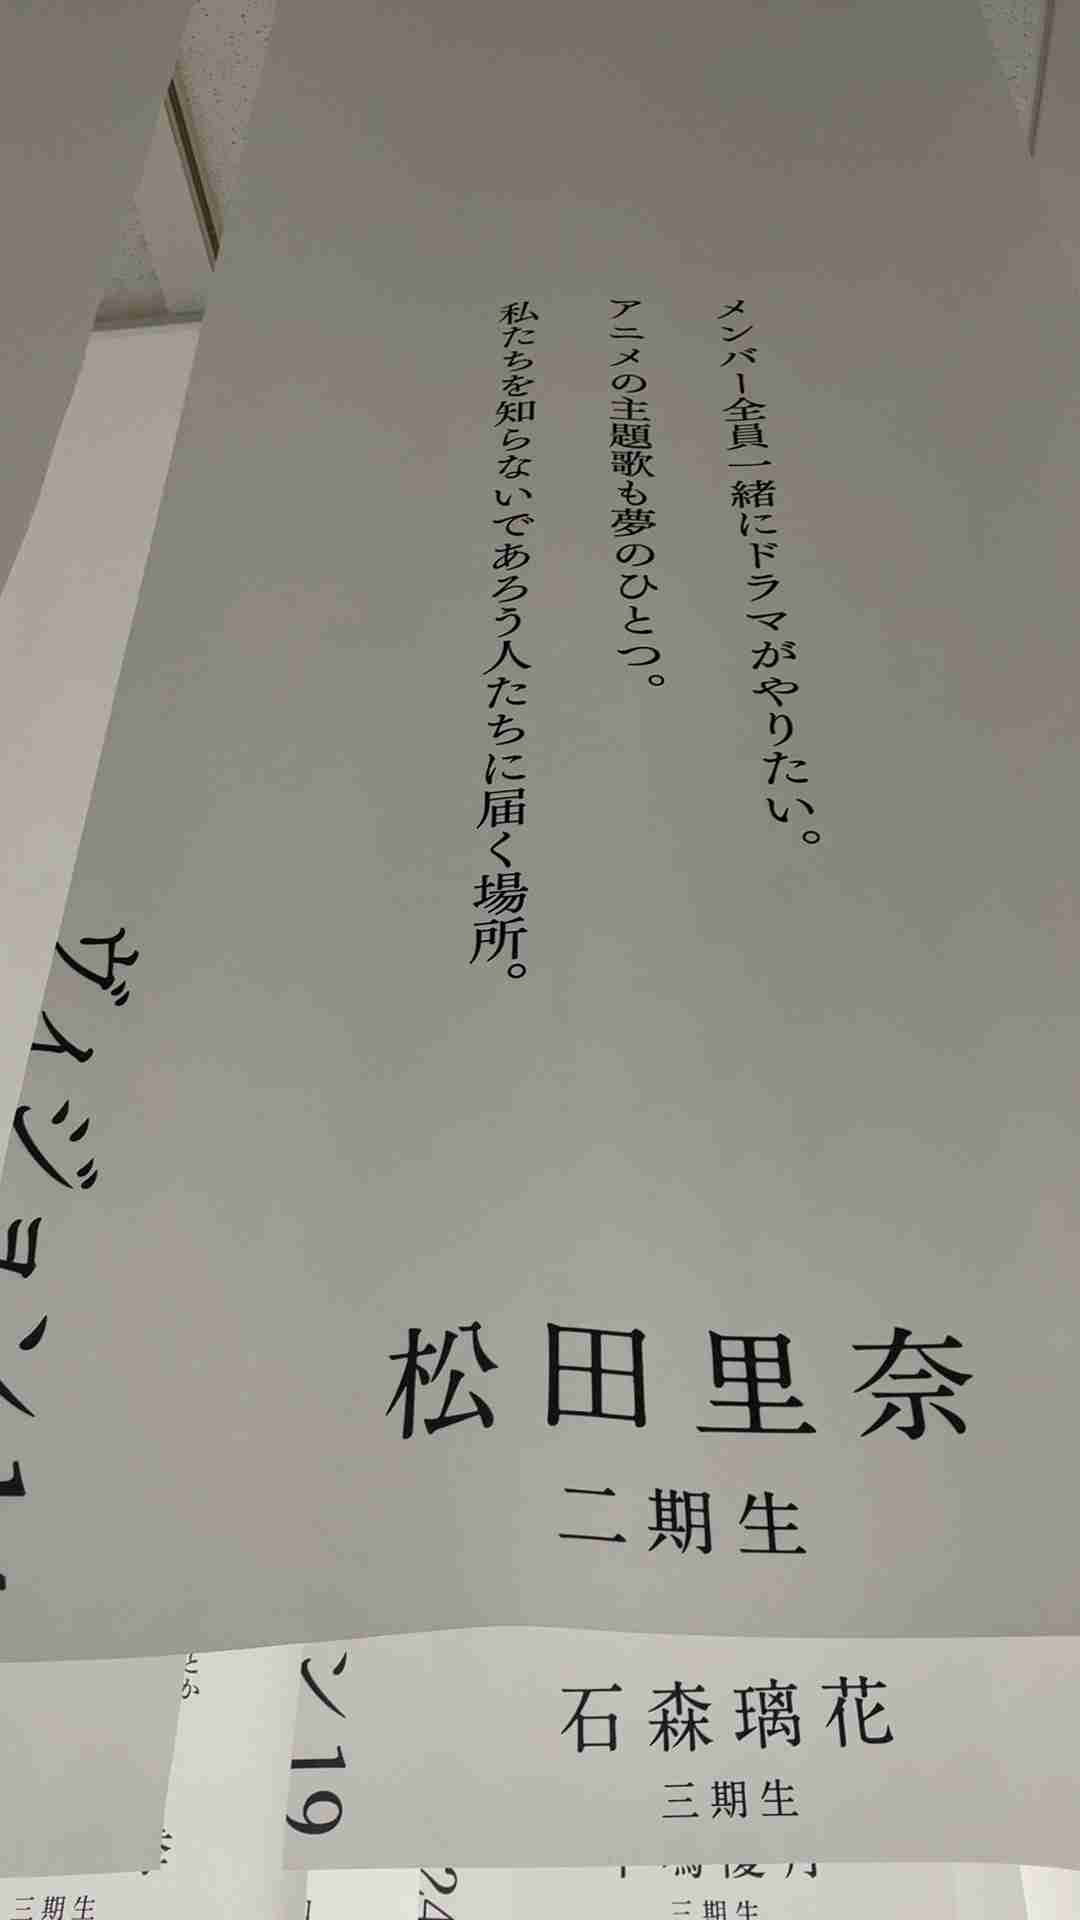 メンバー全員一緒にドラマがやりたい。
アニメの主題歌も夢のひとつ。
私たちを知らないであろう人たちに届く場所。
松田里奈
二期生
ヴィジョン
石森璃花
三期生
ン19
とか
三期生
24
三期生